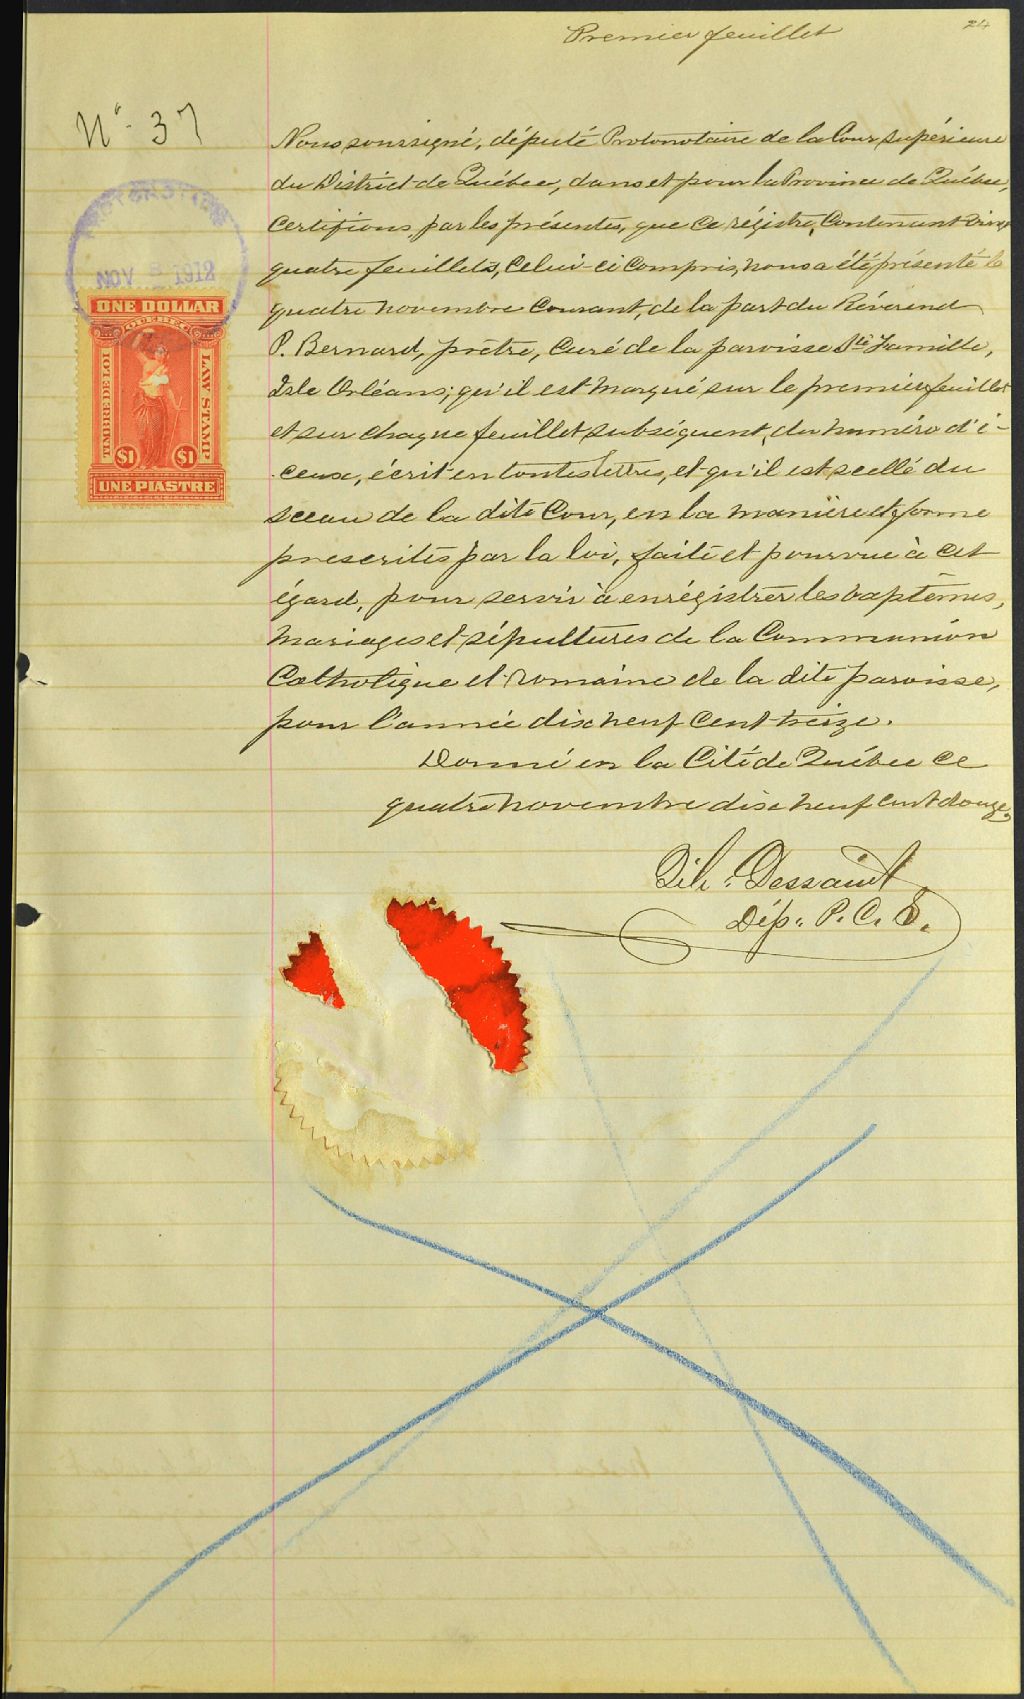 Premier feuillet
24
N° 37
Nous soussigné, député Protonotaire de la Cour supérieure
du District de Québec, dans et pour la Province de Québec,
Certifions, par les présentes, que ce régistre, Contenant vingt
quatre feuillets, celui-ci compris, nous a été présenté le
quatre novembre Courant, de la part du Révérend
P. Bernard, prêtre, Curé de la paroisse Ste Famille,
Isle Orléans; qu'il est marqué sur le premier feuillet
et sur chaque feuillet subséquent, du numéro d'i-
ceux, écrit en toutes lettres, et qu'il est scellé du
sceau de la dite Cour, en la manière et forme
prescrites par la loi, faite et pourvue à cet
égard, pour servir à enrégistrer les baptêmes,
Mariages et sépultures de la Communion
Catholique et romaine de la dite paroisse,
pour l'année dix neuf Cent treize.
Donné en la Cité de Québec ce
quatre novembre dix neuf cent douze,
Dessaint
Dép. P. C. S.
NOV 1912
ONE DOLLAR
QUEBEC
TIMBRE DE LOI
LAW STAMP
$1 $1
UNE PIASTRE